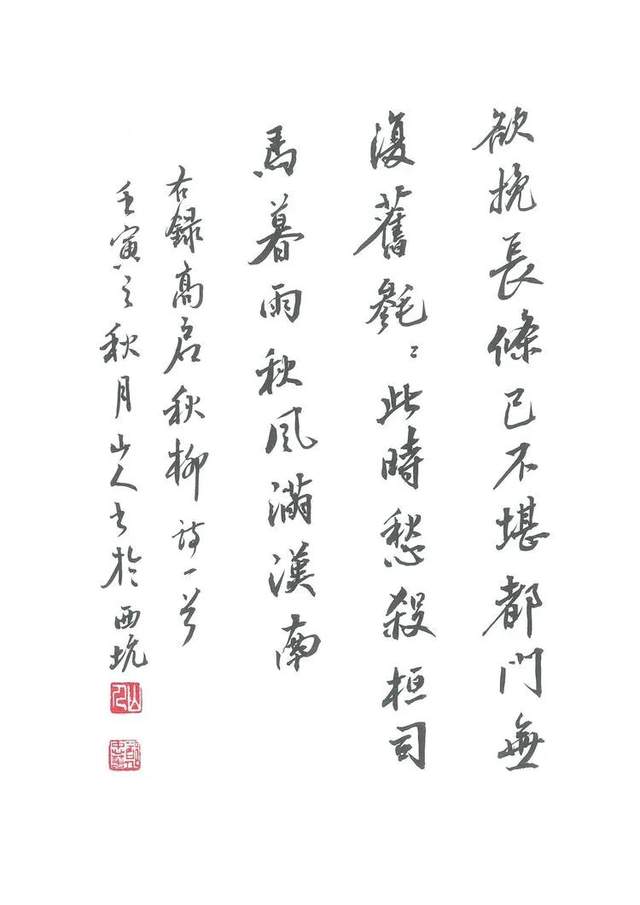 欲挽長條已不堪都門無
復舊毿〻此時愁殺桓司
馬暮雨秋風滿漢南
右録高启秋柳詩一首
壬寅之秋月山人書於西坑
山人